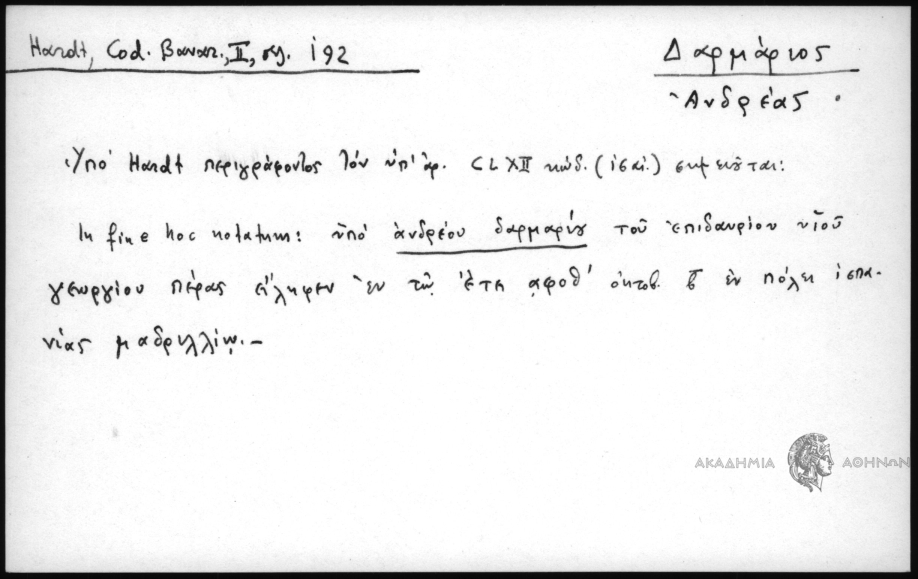 Hardt, Cod. Bavar., II, σελ. 192
Δαρμάριος
Ἀνδρέας.
Ὑπὸ Hardt περιγράφοντος τὸν ὑπ' ἀρ. CLXII κώδ. (ἰσαι.) σημειοῦται:
In fine hoc notatum: ὑπὸ ἀνδρέου δαρμαρίου τοῦ ἐπιδαυρίου υἱοῦ
γεωργίου πέρας εἴληφεν ἐν τῷ ἔτει ͵αφοθ' ὀκτωβ. ἐν πόλει ἱσπα-
νίας μαδριλλίῳ.-
ΑΚΑΔΗΜΙΑ ΑΘΗΝΩΝ